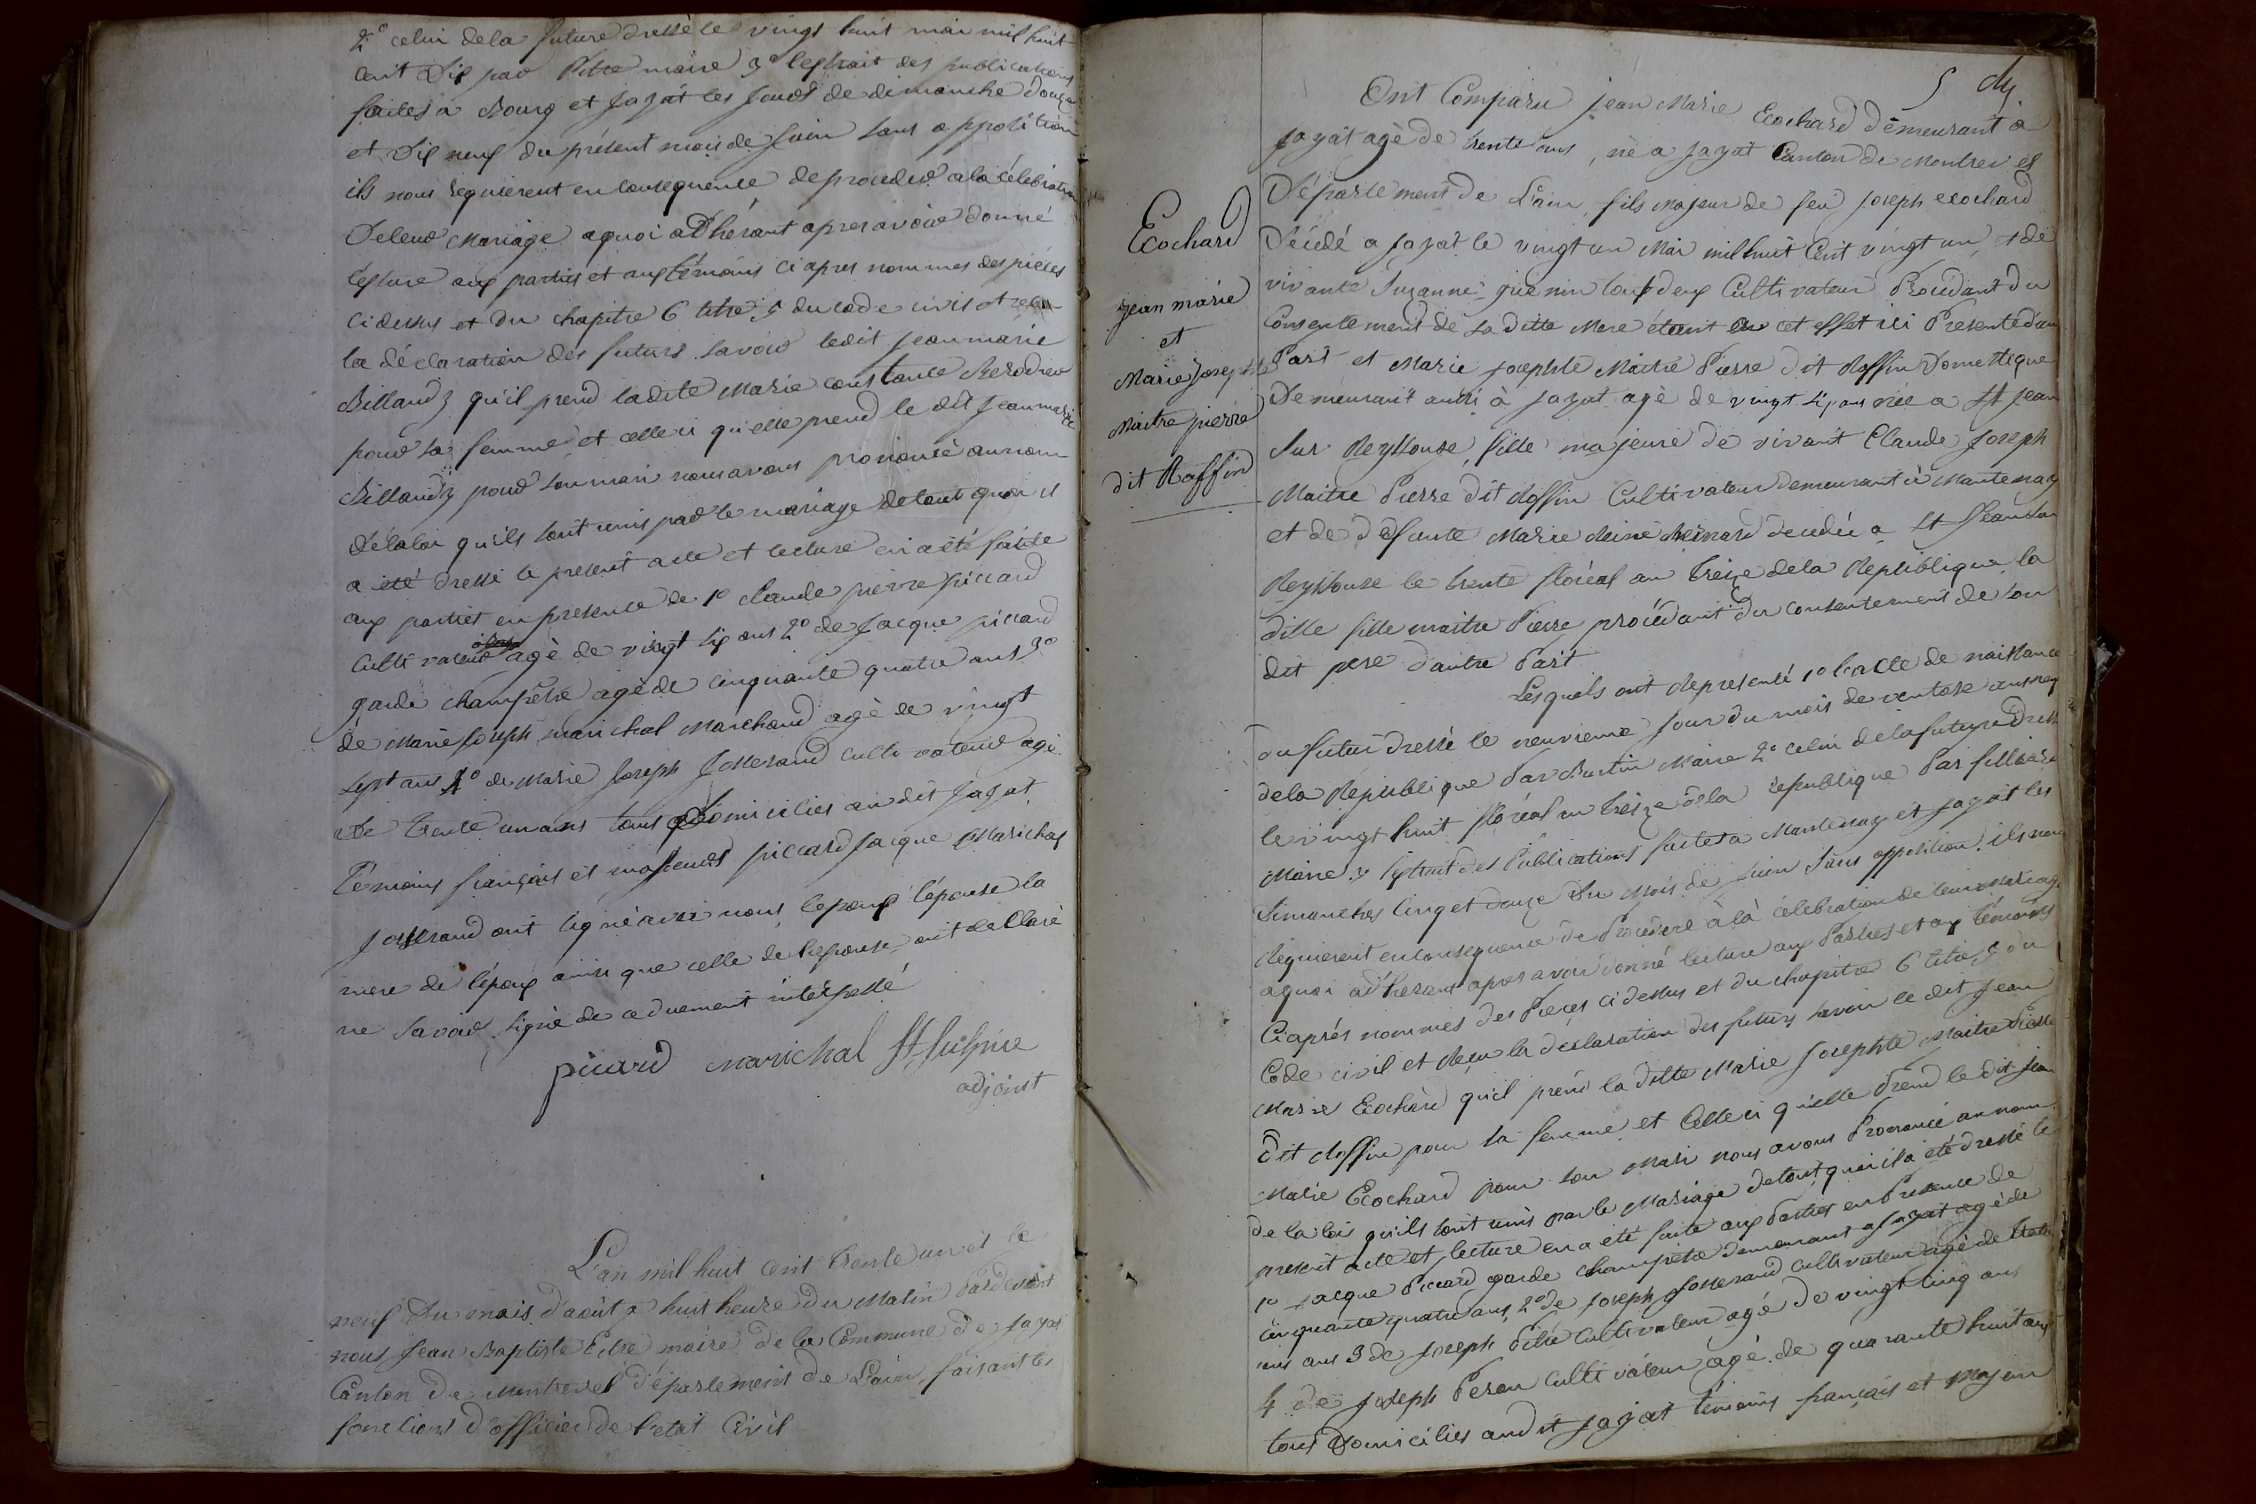 2° celui de la future dressé le vingt huit mai mil huit
cent dix par Pitre maire 3° l'extrait des publications
faites à Bourg et Jayat les jours de dimanche douze
et dix neuf du présent mois de juin sans opposition
ils nous requierent en consequence de proceder a la célébration
de leur mariage aquoi adhérant apres avoir donné
lecture aux parties et aux témoins ci apres nommes des pièces
ci dessus et du chapitre 6 titre 5 du code civil et reçu
la déclaration des futurs savoir ledit jean marie
Billaudz qu'il prend ladite Marie constance
pour sa femme et celle ci qu'elle prend le dit jean marie
Billaudz pour son mari nous avons prononcé au nom
de la loi qu'ils sont unis par le mariage de tout quoi il
a été dressé le present acte et lecture en a été faite
aux parties en presence de 1° Claude pierre piccard
cultivateur agé de vingt six ans 2° de Jacque piccard
garde champêtre agé de cinquante quatre ans 3°
de Marie Joseph marichal Marchand agé de vingt
sept ans 4° de Marie Joseph Josserand cultivateur agé
de trente un ans tous domicilies au dit Jayat
témoins français et majeurs piccard Jacque Marichal
Josserand ont signé avec nous l'epoux l'épouse la
mere de l'époux ainsi que celle de l'epouse ont déclaré
ne savoir signé de ce duement interpellé
picard marichal St Sulpice
adjoint
L'an mil huit cent trente un et le
neuf du mois d'août a huit heure du Matin Pardevant
nous Jean Baptiste Pitre maire de la Commune de Jayat
Canton de Montrevel département de L'ain, faisant les
fonctions d'officier de l'etat Civil
5
Ont Comparu jean Marie Ecochard demeurant a
Jayat agé de trente ans, né a Jayat Canton de Montrevel
Département de L'ain, fils Majeur de feu joseph ecochard
Décédé a Jayat le vingt un Mai mil huit Cent vingt un, et de
vivante Suzanne guenin tous deux Cultivateur Procédant du
Consentement de sa ditte Mere étant a cet effet ici Presente d'une
Part et Marie josephte Maitre Pierre dit Roffin Domestique
Demeurant aussi à Jayat agé de vingt six ans née a St jean
Sur Reyssouze, fille majeure de vivant Claude Joseph
Maitre Pierre dit Roffin Cultivateur demeurant à Mantenay
et de défunte Marie Reine decedée a St Jean sur
Reyssouze le trente floréal an treize de la Republique, la
dille fille maitre Pierre procédant du consentement de son
dit pere d'autre Part
Lesquels ont representé 1° l'acte de naissance
du futur dressé le neuvieme jour du mois de ventose an neuf
de la Republique Par Burtin Maire 2° celui de la future dressé
le vingt huit floréal an treize de la republique Par
Maire 3° l'extrait des Publications faites a Mantenay et Jayat les
dimanches cinq et douze du Mois de juin Sans opposition, ils nous
Requierent en consequence de Proceder à la célébration de leur Mariage
aquoi adhérant apres avoir donné lecture aux Parties et aux témoins
Ciaprés nommes des Pieces ci dessus et du chapitre 6 titre 5 du
Code civil et Reçu la déclaration des futurs savoir le dit Jean
Marie Ecochard qu'il prend la ditte Marie Josephte Maitre Pierre
dit Roffin pour sa femme et Celle ci qu'elle Prend le dit Jean
Marie Ecochard pour son Mari nous avons Prononcé au nom
de la loi qu'ils sont unis par le Mariage de tout quoi il a été dressé le
present acte et lecture en a été faite aux Parties en Presence de
1° Jacque Piccard garde champêtre demeurant a Jayat agé de
cinquante quatre ans, 2° de Joseph Josserand Cultivateur agé de trente
uns ans 3 de Joseph Pitre Cultivateur agé de vingt cinq ans
4 de Joseph Peron Cultivateur agé de quarante huit ans
tous Domicilies audit Jayat temoins français et Majeur
Ecochard
jean marie
et
Marie Josephte
Maitre pierre
dit Raffin